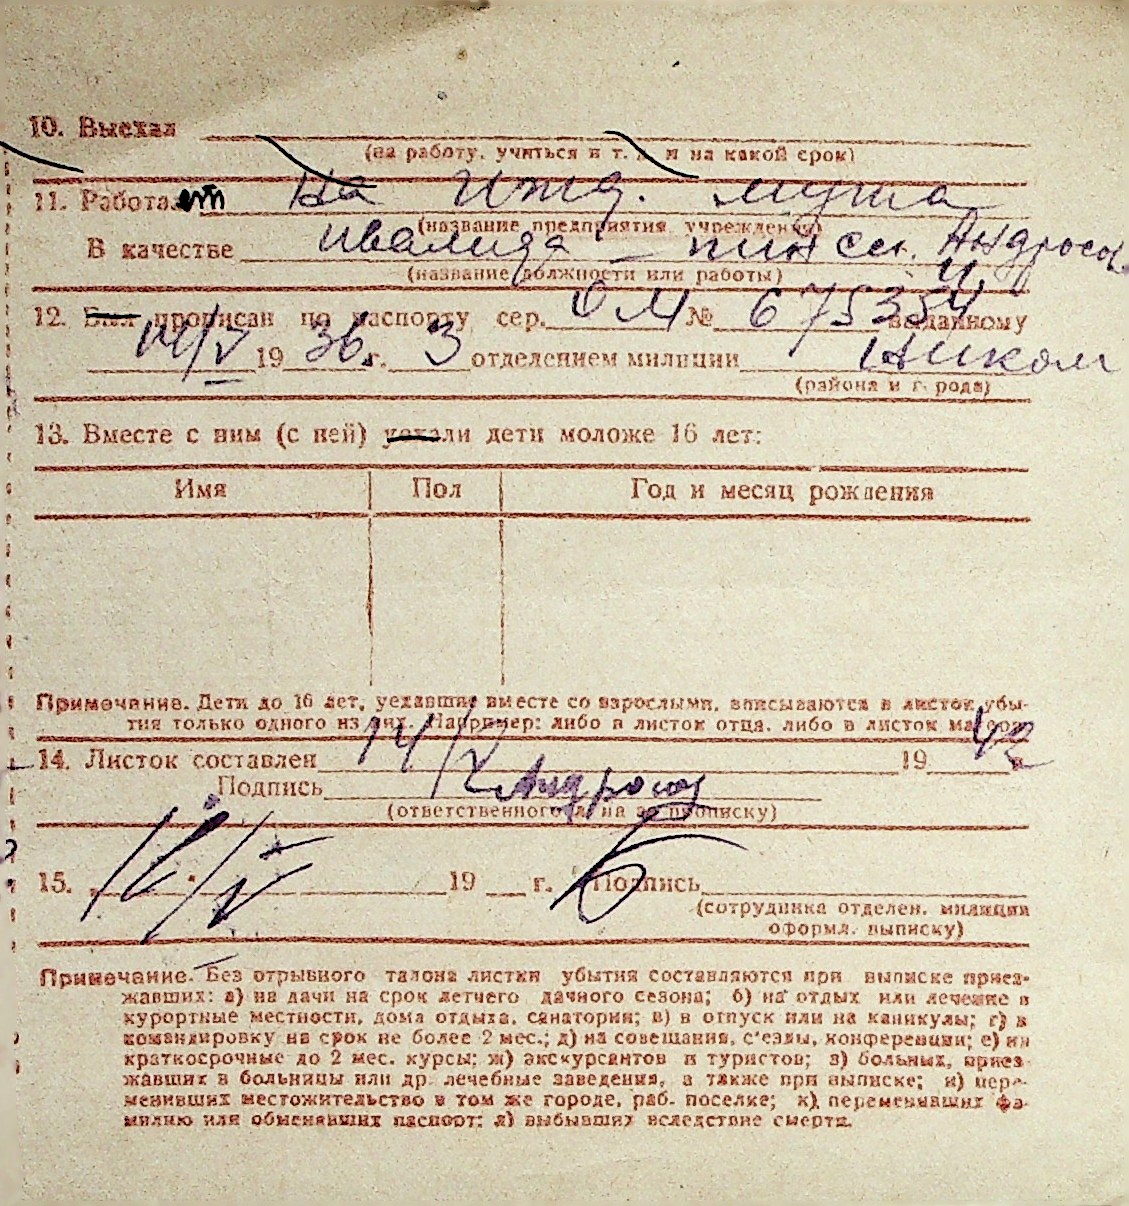 10. Выехал
(на работу, учиться и т. д. и на какой срок)
11. Работает на ижд. мужа
(название предприятия, учреждения)
В качестве ивалида – пинсен. Андросов
(название должности или работы)
12. Был прописан по паспорту сер. ОМ № 675354 выданному
14/V 1936 г. 3 отделением милиции Н.иком
(района и города)
13. Вместе с ним (с ней) уехали дети моложе 16 лет:
Имя Пол Год и месяц рождения
Примечание. Дети до 16 лет, уехавшие вместе со взрослыми, вписываются в листок убы-
тия только одного из них. Например: либо в листок отца, либо в листок матери.
14. Листок составлен 14/V 1942
Подпись Андросов
(ответственного л на за прописку)
15. 19 г. Подпись
(сотрудника отделен. милиции
оформл. выписку)
Примечание. Без отрывного талона листки убытия составляются при выписке приез-
жавших: а) на дачи на срок летнего дачного сезона; б) на отдых или лечение в
курортные местности, дома отдыха, санатории; в) в отпуск или на каникулы; г) в
командировку на срок не более 2 мес.; д) на совещания, с'езды, конференции; е) на
краткосрочные до 2 мес. курсы; ж) экскурсантов и туристов; з) больных, приез-
жавших в больницы или др. лечебные заведения, а также при выписке; и) пере-
менивших местожительство в том же городе, раб. поселке; к) переменивших фа-
милию или обменявших паспорт; л) выбывших вследствие смерти.